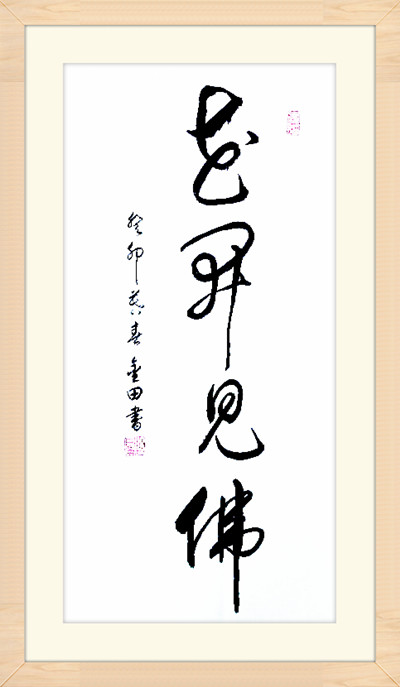 花開見佛
癸卯暮春金田書